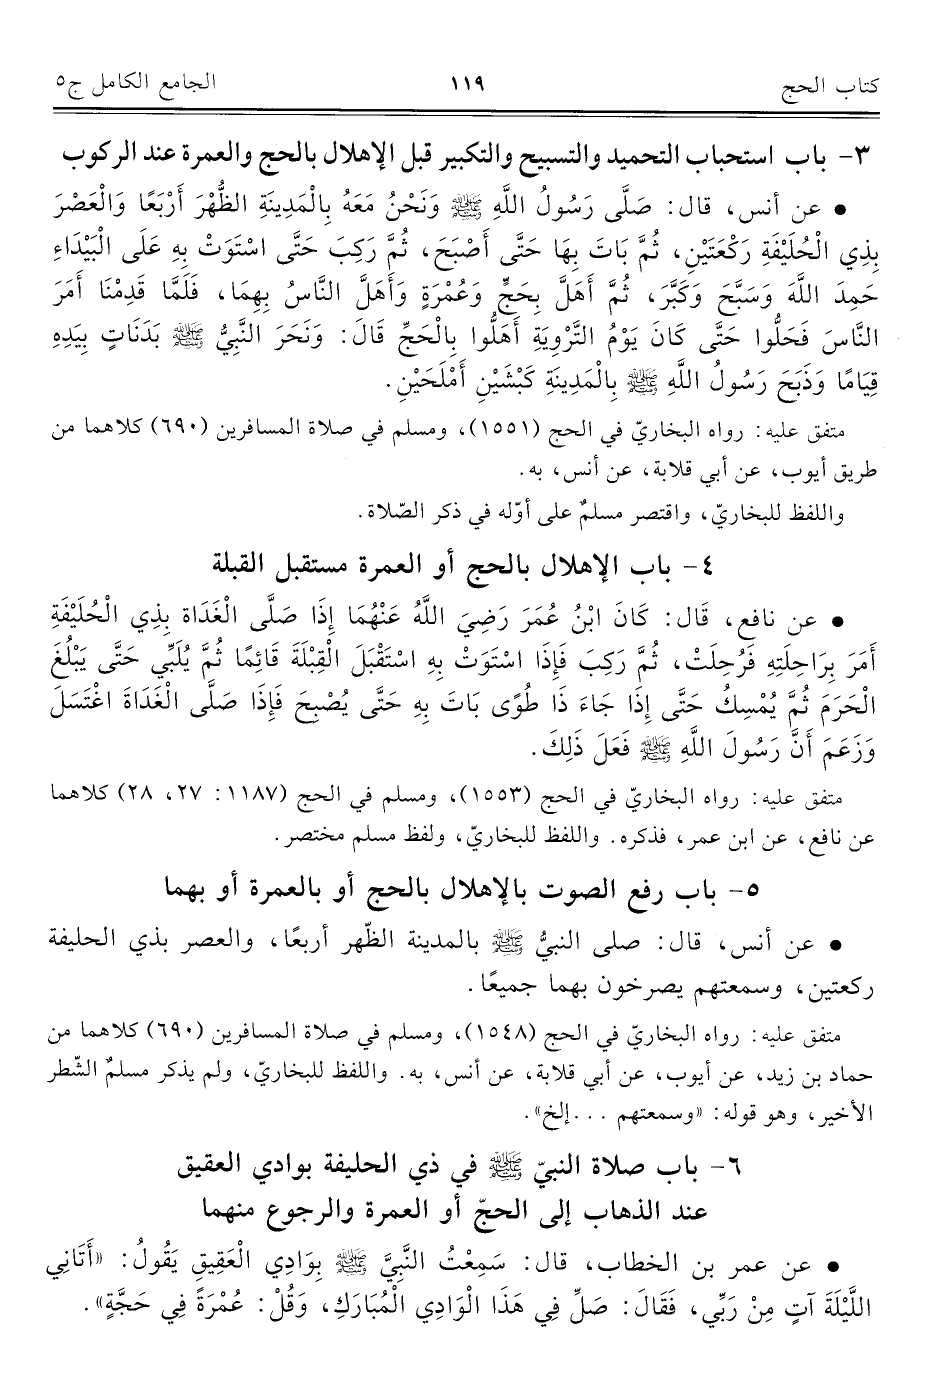 كتاب الحج ١١٩ الجامع الكامل ج٥
٣- باب استحباب التحميد والتسبيح والتكبير قبل الإهلال بالحج والعمرة عند الركوب
● عن أنس، قال: صَلَّى رَسُولُ اللَّهِ ﷺ وَنَحْنُ مَعَهُ بِالْمَدِينَةِ الظُّهْرَ أَرْبَعًا وَالْعَصْرَ
بِذِي الْحُلَيْفَةِ رَكْعَتَيْنِ، ثُمَّ بَاتَ بِهَا حَتَّى أَصْبَحَ، ثُمَّ رَكِبَ حَتَّى اسْتَوَتْ بِهِ عَلَى الْبَيْدَاءِ
حَمِدَ اللَّهَ وَسَبَّحَ وَكَبَّرَ، ثُمَّ أَهَلَّ بِحَجٍّ وَعُمْرَةٍ وَأَهَلَّ النَّاسُ بِهِمَا، فَلَمَّا قَدِمْنَا أَمَرَ
النَّاسَ فَحَلُّوا حَتَّى كَانَ يَوْمُ التَّرْوِيَةِ أَهَلُّوا بِالْحَجِّ قَالَ: وَنَحَرَ النَّبِيُّ ﷺ بَدَنَاتٍ بِيَدِهِ
قِيَامًا وَذَبَحَ رَسُولُ اللَّهِ ﷺ بِالْمَدِينَةِ كَبْشَيْنِ أَمْلَحَيْنِ.
متفق عليه: رواه البخاريّ في الحج (١٥٥١)، ومسلم في صلاة المسافرين (٦٩٠) كلاهما من
طريق أيوب، عن أبي قلابة، عن أنس، به.
واللفظ للبخاريّ، واقتصر مسلمٌ على أوّله في ذكر الصّلاة.
٤- باب الإهلال بالحج أو العمرة مستقبل القبلة
● عن نافع، قَالَ: كَانَ ابْنُ عُمَرَ رَضِيَ اللَّهُ عَنْهُمَا إِذَا صَلَّى الْغَدَاةَ بِذِي الْحُلَيْفَةِ
أَمَرَ بِرَاحِلَتِهِ فَرُحِلَتْ، ثُمَّ رَكِبَ فَإِذَا اسْتَوَتْ بِهِ اسْتَقْبَلَ الْقِبْلَةَ قَائِمًا ثُمَّ يُلَبِّي حَتَّى يَبْلُغَ
الْحَرَمَ ثُمَّ يُمْسِكُ حَتَّى إِذَا جَاءَ ذَا طُوًى بَاتَ بِهِ حَتَّى يُصْبِحَ فَإِذَا صَلَّى الْغَدَاةَ اغْتَسَلَ
وَزَعَمَ أَنَّ رَسُولَ اللَّهِ ﷺ فَعَلَ ذَلِكَ.
متفق عليه: رواه البخاريّ في الحج (١٥٥٣)، ومسلم في الحج (١١٨٧: ٢٧، ٢٨) كلاهما
عن نافع، عن ابن عمر، فذكره. واللفظ للبخاريّ، ولفظ مسلم مختصر.
٥- باب رفع الصوت بالإهلال بالحج أو بالعمرة أو بهما
● عن أنس، قال: صلى النبيُّ ﷺ بالمدينة الظّهر أربعًا، والعصر بذي الحليفة
ركعتين، وسمعتهم يصرخون بهما جميعًا.
متفق عليه: رواه البخاريّ في الحج (١٥٤٨)، ومسلم في صلاة المسافرين (٦٩٠) كلاهما من
حماد بن زيد، عن أيوب، عن أبي قلابة، عن أنس، به. واللفظ للبخاريّ، ولم يذكر مسلمٌ الشّطر
الأخير، وهو قوله: «وسمعتهم ...إلخ».
٦- باب صلاة النبيّ ﷺ في ذي الحليفة بوادي العقيق
عند الذهاب إلى الحجّ أو العمرة والرجوع منهما
● عن عمر بن الخطاب، قال: سَمِعْتُ النَّبِيَّ ﷺ بِوَادِي الْعَقِيقِ يَقُولُ: «أَتَانِي
اللَّيْلَةَ آتٍ مِنْ رَبِّي، فَقَالَ: صَلِّ فِي هَذَا الْوَادِي الْمُبَارَكِ، وَقُلْ: عُمْرَةً فِي حَجَّةٍ».